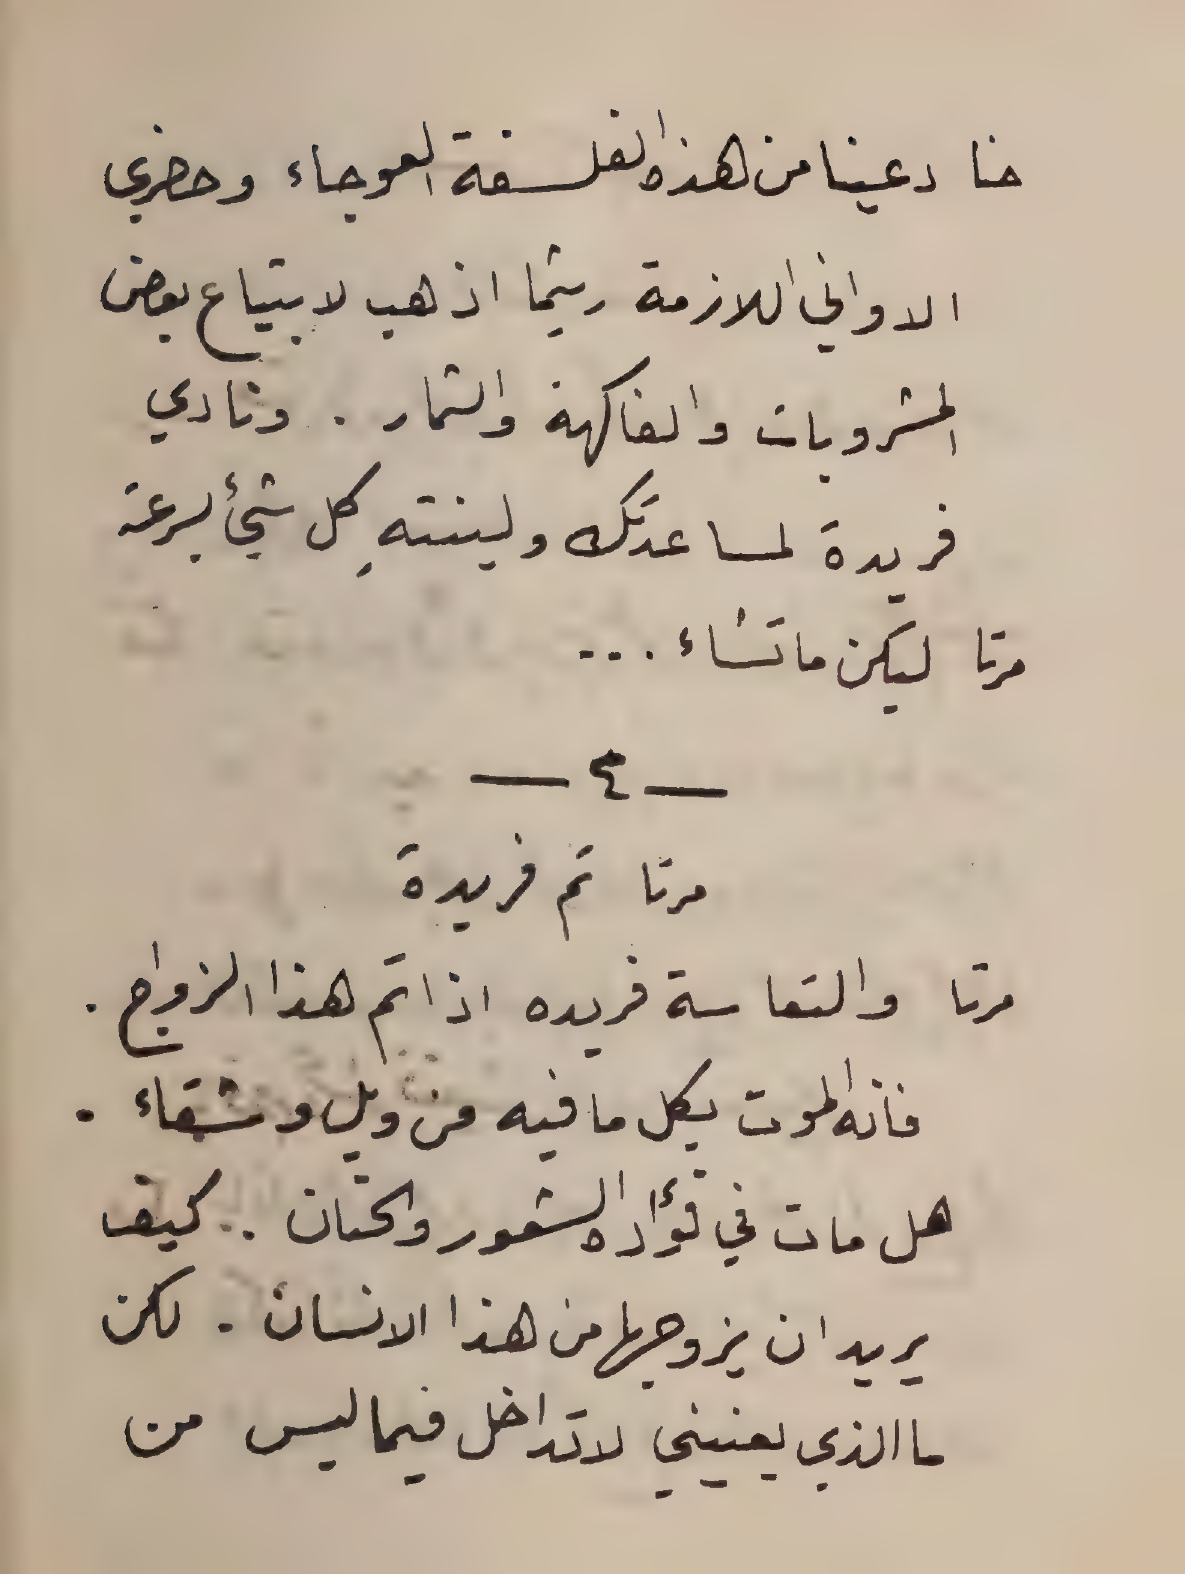 حنا دعينا من هذه الفلسفة العوجاء وحضري
الاواني اللازمة ريثما اذهب لابتياع بعض
المشروبات والفاكهة والثمار . ونادي
فريدة لمساعدتك ولينتهِ كل شيئ بسرعة
مرتا ليكن ما تشاء ...
— ٤ —
مرتا ثم فريدة
مرتا والتعاسة فريده اذا تم هذا الزواج .
فانه الموت بكل ما فيه من ويل وشقاء .
هل مات في فؤاده الشعور والحنان . كيف
يريد ان يزوجها من هذا الانسان . لكن
ما الذي يعنيني لاتداخل فيما ليس من